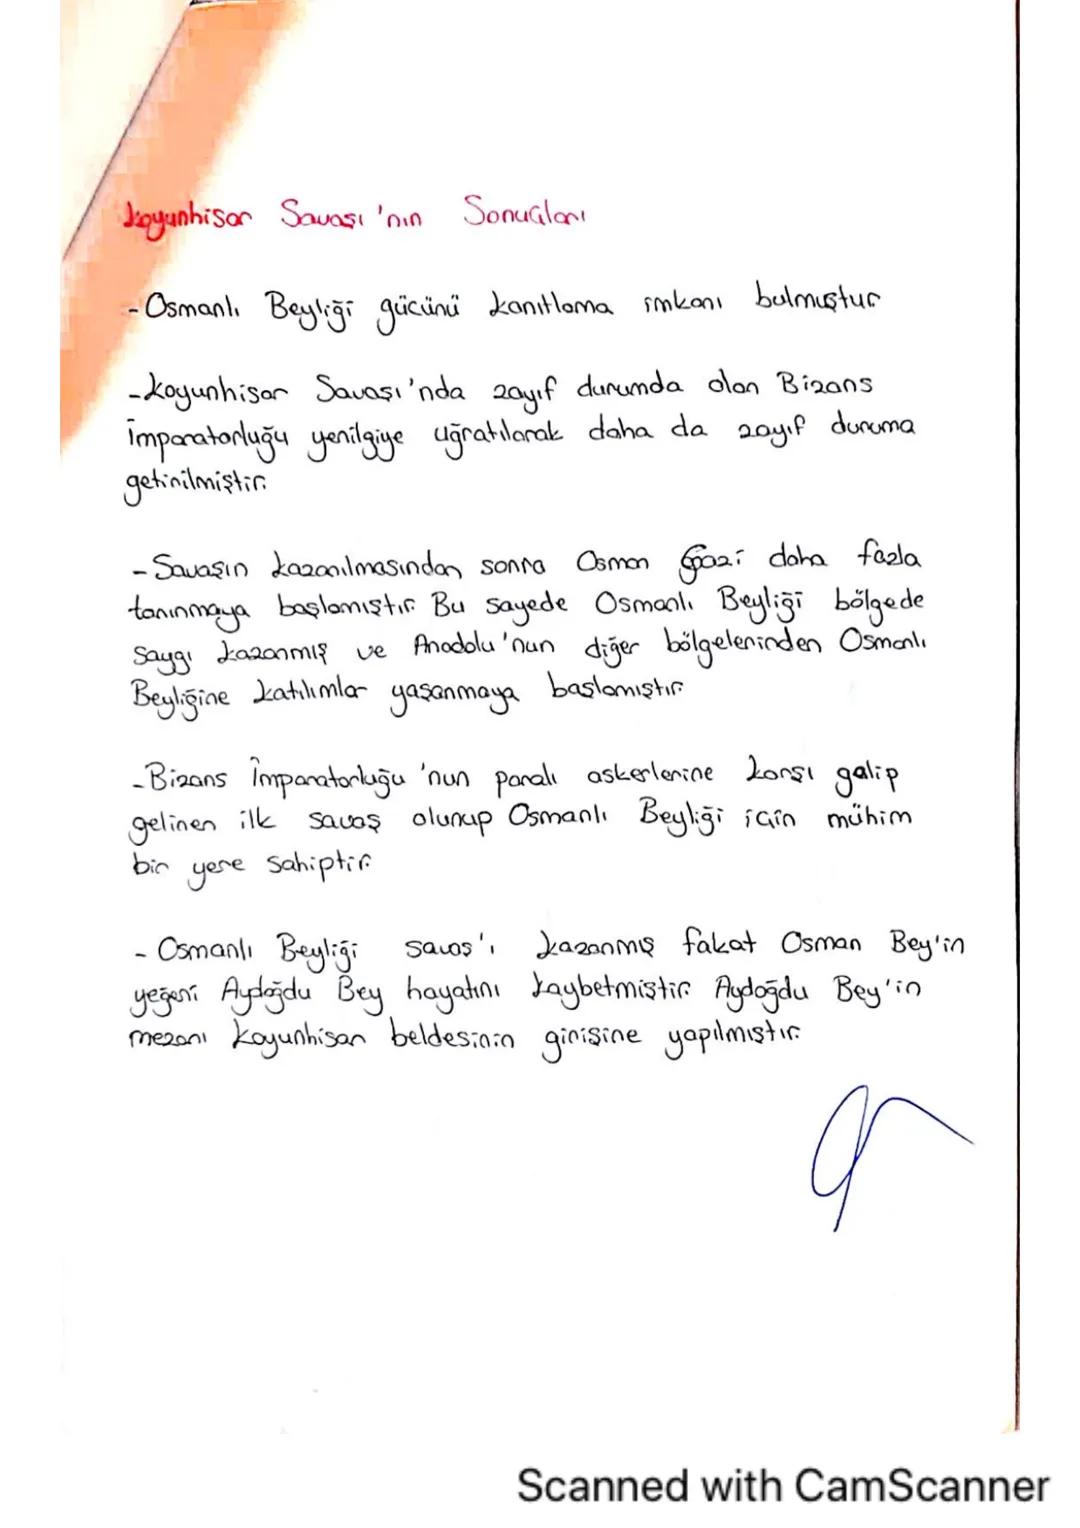 Koyunhisar Savaşı'nın Sonuçları
- Osmanlı Beyliği gücünü kanıtlama imkanı bulmuştur
- Koyunhisar Savaşı'nda zayıf durumda olan Bizans
İmparatorluğu yenilgiye uğratılarak daha da zayıf duruma
getirilmiştir.
- Savaşın kazanılmasından sonra Osman Gazi daha fazla
tanınmaya başlamıştır. Bu sayede Osmanlı Beyliği bölgede
saygı kazanmış ve Anadolu'nun diğer bölgelerinden Osmanlı
Beyliğine katılımlar yaşanmaya başlamıştır.
- Bizans İmparatorluğu'nun paralı askerlerine karşı galip
gelinen ilk savaş olunup Osmanlı Beyliği için mühim
bir yere sahiptir.
- Osmanlı Beyliği savaş'ı kazanmış fakat Osman Bey'in
yeğeni Aydoğdu Bey hayatını kaybetmiştir. Aydoğdu Bey'in
mezarı Koyunhisar beldesinin girişine yapılmıştır.
Scanned with CamScanner